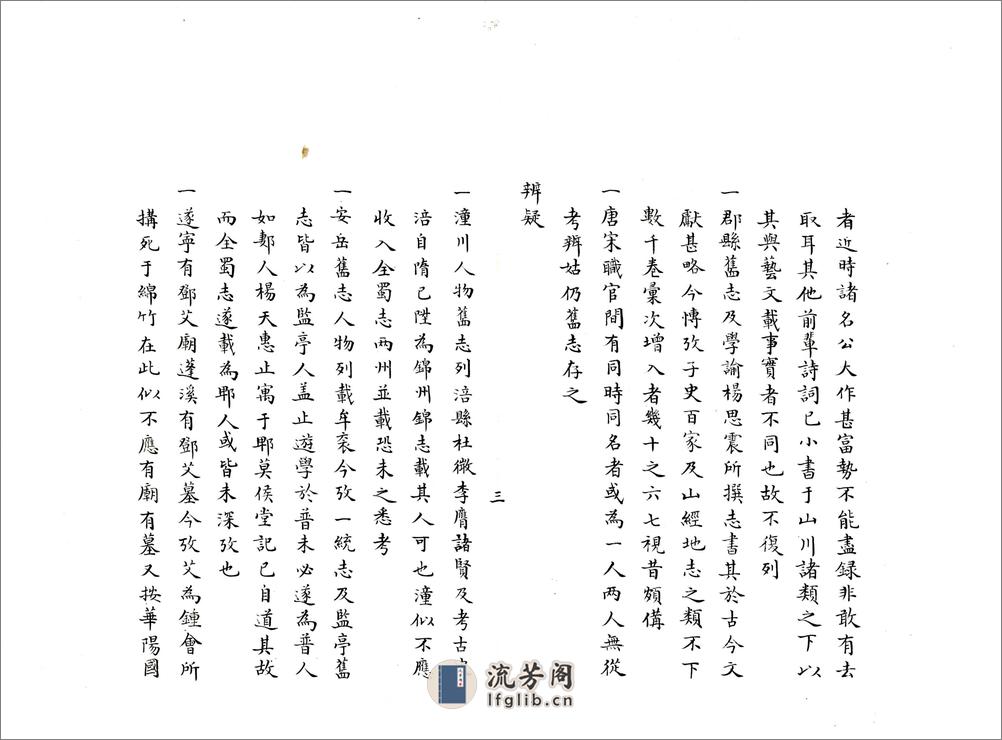 者近時諸名公大作甚富勢不能盡録非敢有去
取耳其他前輩詩詞已小書于山川諸類之下以
其與藝文載事實者不同也故不復列
一郡縣舊志及學諭楊思震所撰志書其於古今文
獻甚略今博攷子史百家及山經地志之類不下
數千卷彙次增入者幾十之六七視昔頗備
一唐宋職官間有同時同名者或為一人兩人無從
考辨姑仍舊志存之
辨疑
三
一潼川人物舊志列涪縣杜微李膺諸賢及考古
涪自隋已陞為錦州錦志載其人可也潼似不應
收入全蜀志兩州並載恐未之悉考
一安岳舊志人物列載牟袞今攷一統志及監亭舊
志皆以為監亭人盖止遊學於普未必遂為普人
如鄭人楊天惠止寓于郫莫侯堂記已自道其故
而全蜀志遂載為郫人或皆未深攷也
一遂寧有鄧艾廟蓬溪有鄧艾墓今攷艾為鍾會所
搆死于綿竹在此似不應有廟有墓又按華陽國
流芳阁
lfglib.cn